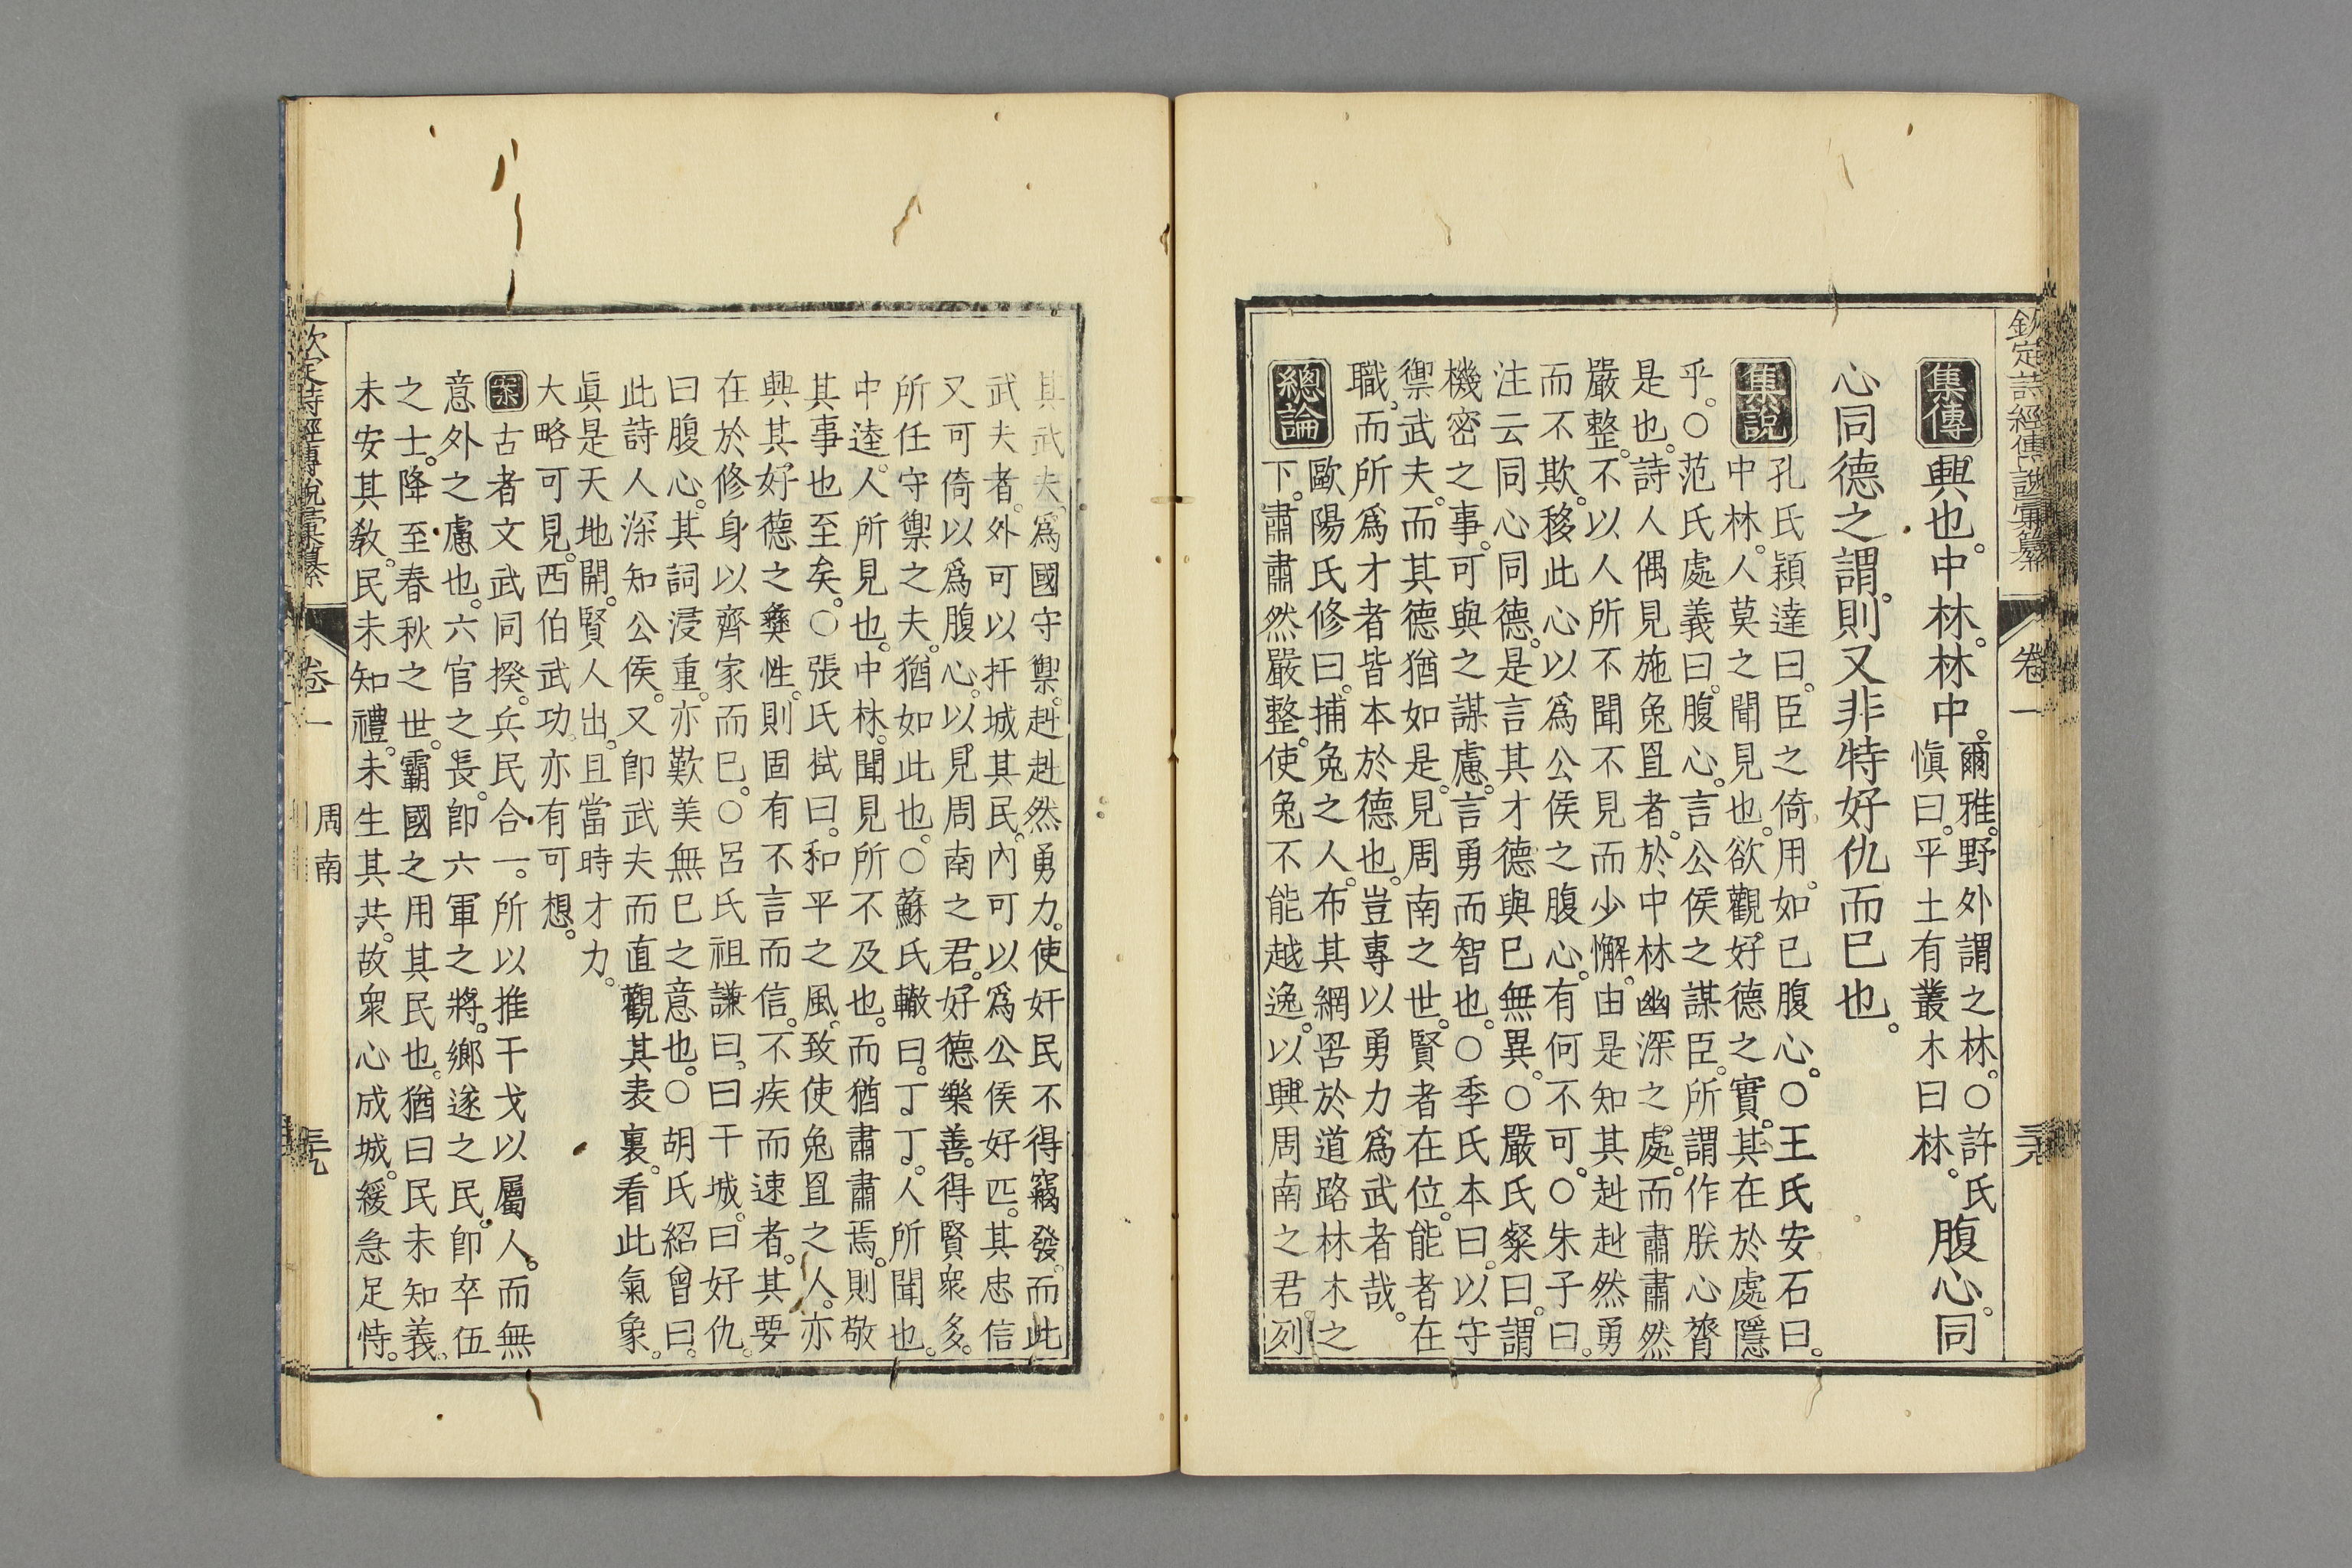 欽定詩經傳說彙纂 卷一
集傳 興也。中林。林中。爾雅。野外謂之林。○許氏
愼曰。平土有叢木曰林。腹心。同
心同德之謂。則又非特好仇而已也。
集說 孔氏穎達曰。臣之倚用。如已腹心。○王氏安石曰。
中林。人莫之聞見也。欲觀好德之實。其在於處隱
乎。○范氏處義曰。腹心。言公侯之謀臣。所謂作朕心膂
是也。詩人偶見施兔罝者。於中林幽深之處。而肅肅然
嚴整。不以人所不聞不見而少懈。由是知其赳赳然勇
而不欺。移此心以爲公侯之腹心。有何不可。○朱子曰。
注云同心同德。是言其才德與巳無異。○嚴氏粲曰。謂
機密之事。可與之謀慮。言勇而智也。○季氏本曰。以守
禦武夫。而其德猶如是。見周南之世。賢者在位。能者在
職。而所爲才者皆本於德也。豈專以勇力爲武者哉。
總論 歐陽氏修曰。捕兔之人。布其網罟於道路林木之
下。肅肅然嚴整。使兔不能越逸。以興周南之君。列
其武夫。爲國守禦。赳赳然勇力。使奸民不得竊發。而此
武夫者。外可以扞城其民。內可以爲公侯好匹。其忠信
又可倚以爲腹心。以見周南之君。好德樂善。得賢衆多。
所任守禦之夫。猶如此也。○蘇氏轍曰。丁丁。人所聞也。
中逵。人所見也。中林。聞見所不及也。而猶肅肅焉。則敬
其事也至矣。○張氏栻曰。和平之風。致使兔罝之人。亦
興其好德之彝性。則固有不言而信。不疾而速者。其要
在於修身以齊家而巳。○呂氏祖謙曰。曰干城。曰好仇。
曰腹心。其詞浸重。亦歎美無巳之意也。○胡氏紹曾曰。
此詩人深知公侯。又卽武夫而直觀其表裏。看此氣象。
眞是天地開。賢人出。且當時才力。
大略可見。西伯武功。亦有可想。
案 古者文武同揆。兵民合一。所以推干戈以屬人。而無
意外之慮也。六官之長。卽六軍之將。鄉遂之民。卽卒伍
之士。降至春秋之世。霸國之用其民也。猶曰民未知義。
未安其敎。民未知禮。未生其共。故衆心成城。緩急足恃。
欽定詩經傳說彙纂 卷一 周南